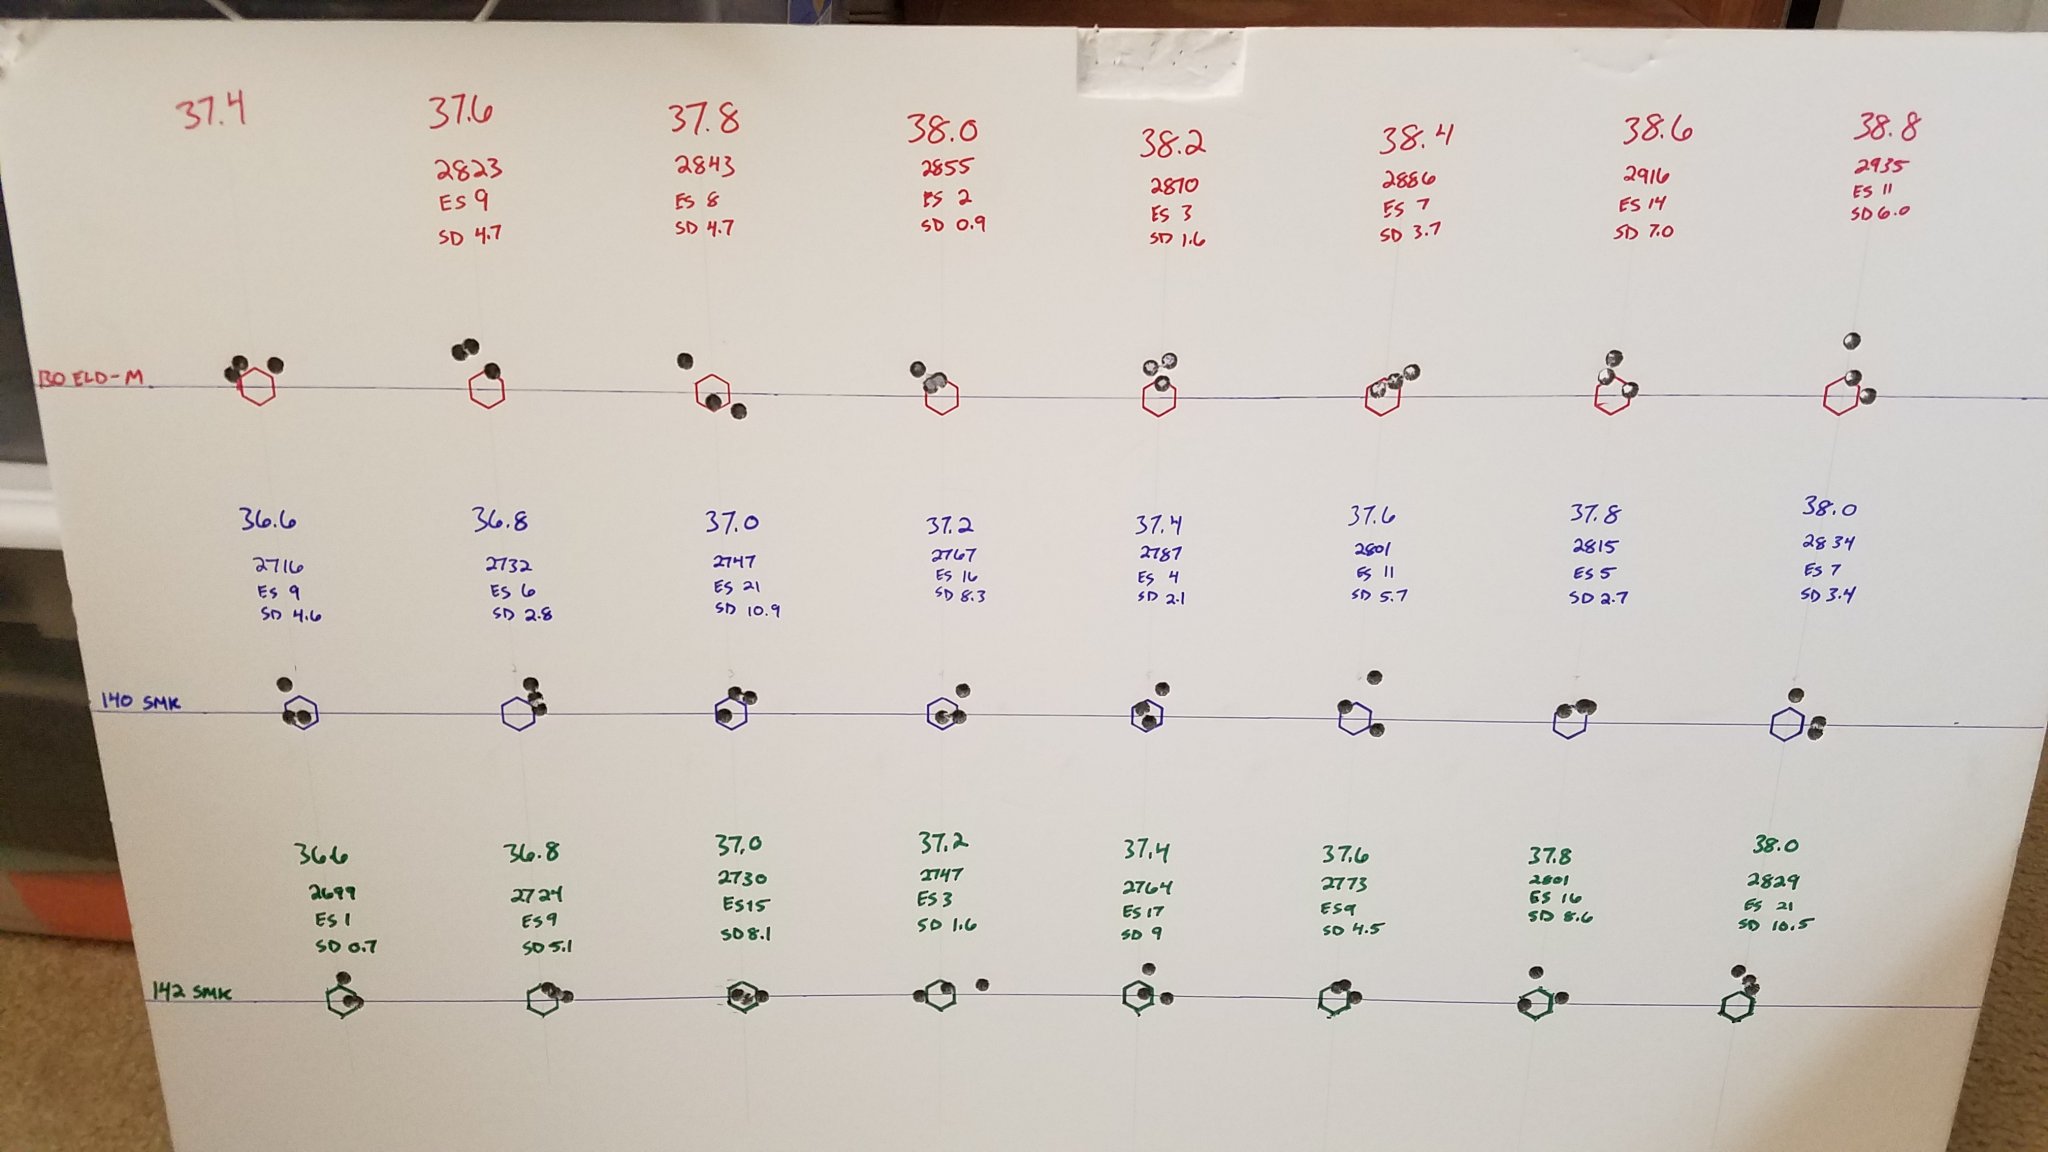 37.4 37.6 37.8 38.0 38.2 38.4 38.6 38.8
2823 2843 2855 2870 2886 2916 2935
ES 9 ES 8 ES 2 ES 3 ES 7 ES 14 ES 11
SD 4.7 SD 4.7 SD 0.9 SD 1.6 SD 3.7 SD 7.0 SD 6.0
130 ELD-M
36.6 36.8 37.0 37.2 37.4 37.6 37.8 38.0
2716 2732 2747 2767 2787 2801 2815 2834
ES 9 ES 6 ES 21 ES 16 ES 4 ES 11 ES 5 ES 7
SD 4.6 SD 2.8 SD 10.9 SD 8.3 SD 2.1 SD 5.7 SD 2.7 SD 3.4
140 SMK
36.6 36.8 37.0 37.2 37.4 37.6 37.8 38.0
2699 2724 2730 2747 2764 2773 2801 2829
ES 1 ES 9 ES 15 ES 3 ES 17 ES 9 ES 16 ES 21
SD 0.7 SD 5.1 SD 8.1 SD 1.6 SD 9 SD 4.5 SD 8.6 SD 10.5
142 SMK